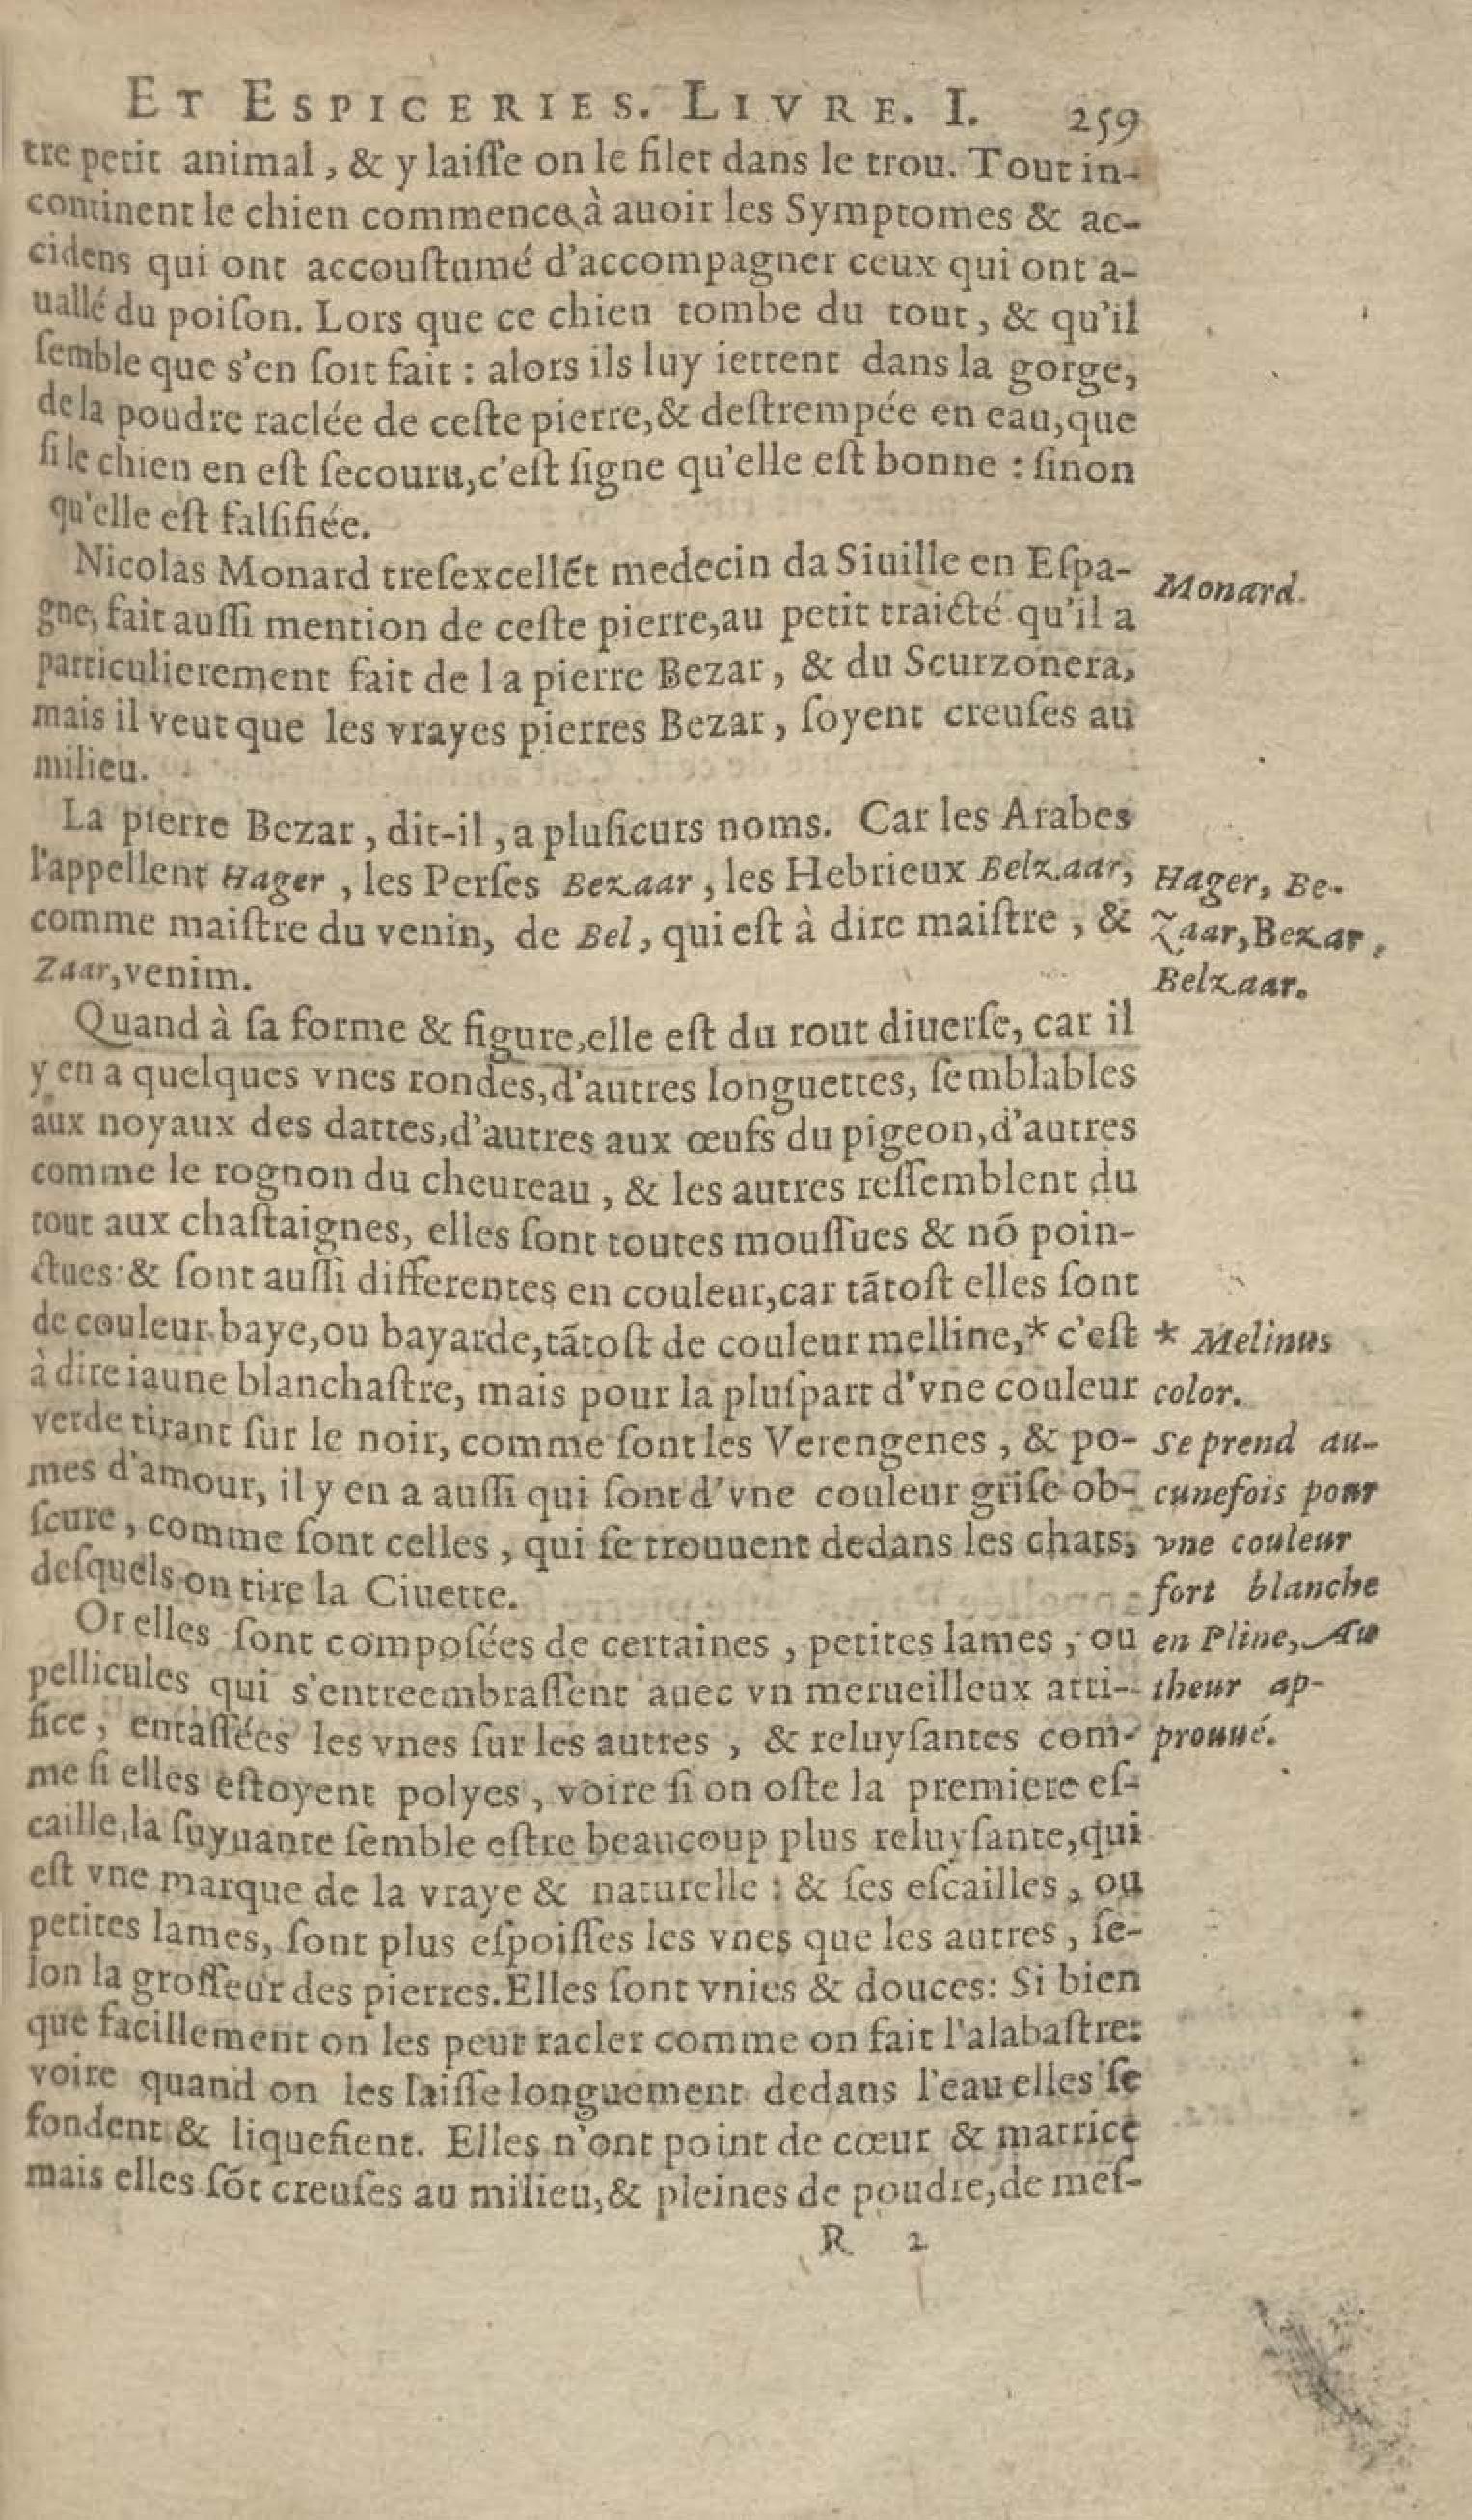 ET ESPICERIES. LIVRE. I. 259
tre petit animal, & y laiſſe on le filet dans le trou. Tout in-
continent le chien commence à auoir les Symptomes & ac-
cidens qui ont accouſtumé d'accompagner ceux qui ont a-
uallé du poiſon. Lors que ce chien tombe du tout, & qu'il
ſemble que s'en ſoit fait : alors ils luy iettent dans la gorge,
de la poudre raclée de ceſte pierre, & deſtrempée en eau, que
ſi le chien en eſt ſecouru, c'eſt ſigne qu'elle eſt bonne : ſinon
qu'elle eſt falſifiée.
Nicolas Monard treſexcellẽt medecin da Siuille en Eſpa-
gne, fait auſſi mention de ceſte pierre, au petit traicté qu'il a
particulierement fait de la pierre Bezar, & du Scurzonera,
mais il veut que les vrayes pierres Bezar, ſoyent creuſes au
milieu.
Monard.
La pierre Bezar, dit-il, a pluſieurs noms. Car les Arabes
l'appellent Hager, les Perſes Bezaar, les Hebrieux Belzaar,
comme maiſtre du venin, de Bel, qui eſt à dire maiſtre, &
Zaar, venim.
Hager, Be-
zaar, Bezar,
Belzaar.
Quand à ſa forme & figure, elle eſt du rout diuerſe, car il
y en a quelques vnes rondes, d'autres longuettes, ſemblables
aux noyaux des dattes, d'autres aux œufs du pigeon, d'autres
comme le rognon du cheureau, & les autres reſſemblent du
tout aux chaſtaignes, elles ſont toutes mouſſues & nõ poin-
ctues: & ſont auſſi differentes en couleur, car tãtoſt elles ſont
de couleur baye, ou bayarde, tãtoſt de couleur melline,* c'eſt
à dire iaune blanchaſtre, mais pour la pluſpart d'vne couleur
verde tirant ſur le noir, comme ſont les Verengenes, & po-
mes d'amour, il y en a auſſi qui ſont d'vne couleur griſe ob-
ſcure, comme ſont celles, qui ſe trouuent dedans les chats,
deſquels on tire la Ciuette.
* Melinus
color.
Se prend au-
cunefois pour
vne couleur
fort blanche
en Pline, Au
theur ap-
prouué.
Or elles ſont compoſées de certaines, petites lames, ou
pellicules qui s'entreembraſſent auec vn merueilleux arti-
fice, entaſſées les vnes ſur les autres, & reluyſantes com-
me ſi elles eſtoyent polyes, voire ſi on oſte la premiere eſ-
caille, la ſuyuante ſemble eſtre beaucoup plus reluyſante, qui
eſt vne marque de la vraye & naturelle : & ſes eſcailles, ou
petites lames, ſont plus eſpoiſſes les vnes que les autres, ſe-
lon la groſſeur des pierres. Elles ſont vnies & douces: Si bien
que facillement on les peut racler comme on fait l'alabaſtre:
voire quand on les laiſſe longuement dedans l'eau elles ſe
fondent & liquefient. Elles n'ont point de cœur & matrice
mais elles ſõt creuſes au milieu, & pleines de poudre, de meſ-
R 2